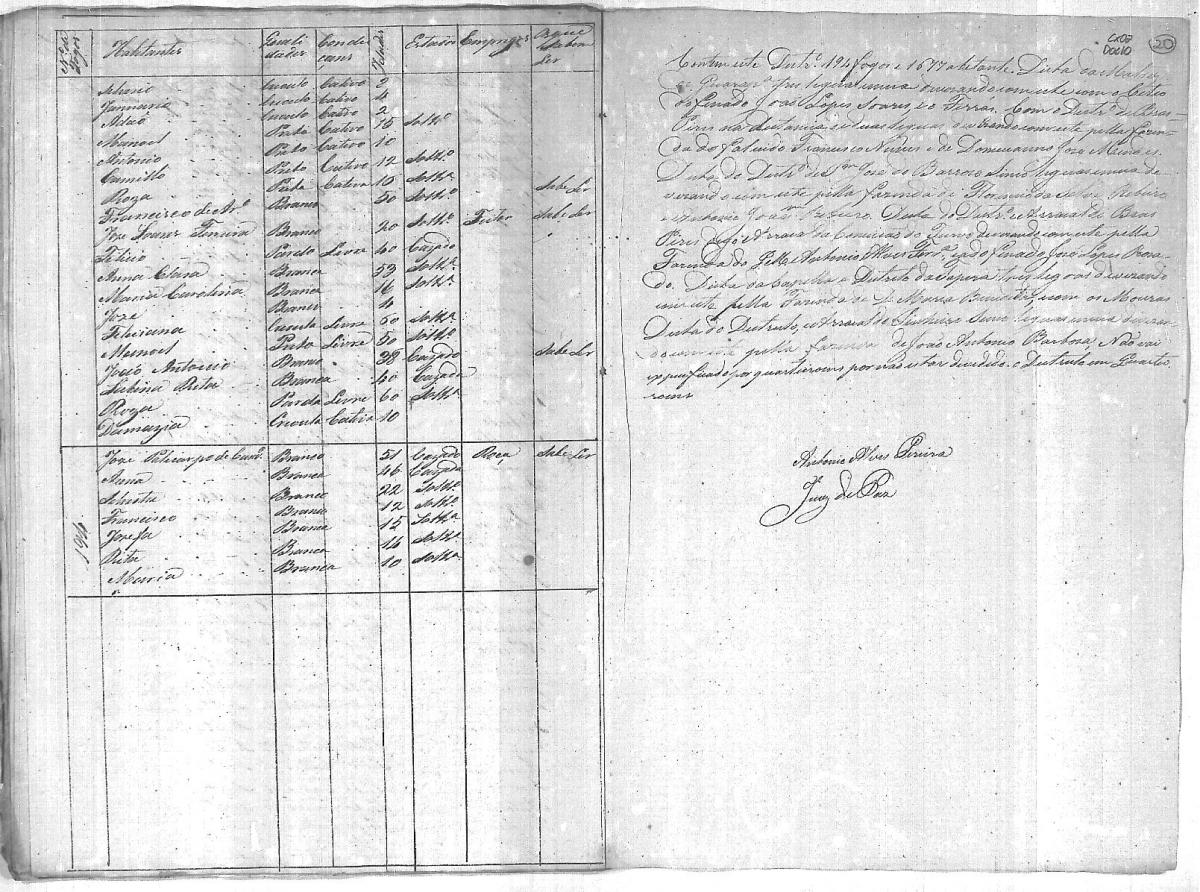 Nº de Fogos Habitantes Quali dades Condi coens Idades Estados Empregos Os que Sabem Ler
Crioulo Cativo 2
Januaria Crioulo Cativo 4
Adaõ Crioulo Cativo 2
Manoel Preto Cativo 15 Soltrº
Antonio Preto Cativo 10
Camillo Preto Cativo 12 Soltrº
Roza Preta Cativa 10 Soltrª
Francisco de Arº Branco 50 Soltrº Sabe Ler
Joze Soares Ferreira Branco 20 Soltrº Feitor Sabe Ler
Felicio Pardo Livre 40 Cazado
Anna Clara Branca 53 Soltrª
Maria Carolina Branca 16 Soltrª
Joze Branco 4
Feliciana Crioula Livre 60 Soltrª
Manoel Preto Livre 50 Soltrº
João Antonio Branco 38 Cazado Sabe Ler
Sabina Rita Branca 40 Cazada
Roza Parda Livre 60 Soltrª
Damazia Crioula Cativa 10
194 Joze Policarpo de Carvº Branco 51 Cazado Roça Sabe Ler
Anna Branca 46 Cazada
Branco 22 Soltrº
Francisco Branco 12 Soltrº
Jozefa Branca 15 Soltrª
Rita Branca 14 Soltrª
Maria Branca 10 Soltrª
CX07
DOC10
20
Contem este Destrº 194 fogos e 1677 abitante. Dista da Matriz
de tres leguas emeia devizando com este com o Citio
do Finado Joaõ Lopes Soares, e o Ferras. Com o Destrº de Bras
Pires na distancia de duas leguas devizando com este pella Fazen
da do Falecido Francisco Nunes e de Domiciano Joze Mendes.
Dista do Destrº de S. José do Barrozo Sinco leguas emeia de
vizando com este pella fazenda de Florencia de Ribeiro
e Antonio Joaqm Dista do Destrº e Arraial de Bras
Pires devizando com este pella
Fazenda do e Antonio Alves Ferrª, e a do Finado José Lopes Roza
do. Dista da Capella e Destrito da tres legoas devizando
com este pella Fazenda de D. Maria Benedita, e com os Mouras
Dista do Destrito, e Arraial do leguas emeia devizan
do com este pella fazenda de João Antonio Barboza. Não vai
expecificado por quarteiroens por não estar devidido o Destrito em Quartei
roens
Antonio Alves Pereira
Juiz de Paz